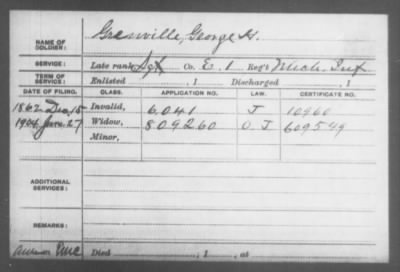 NAME OF SOLDIER: Granville, George H.
SERVICE: Late rank Sgt Co. E. 1 Reg't Mich. Inf
TERM OF SERVICE: Enlisted , 1 Discharged , 1
DATE OF FILING. CLASS. APPLICATION NO. LAW. CERTIFICATE NO.
1862 Dec, 15 Invalid, 6.041 J 10960
1904 June 27 Widow, 809260 O. J 609549
Minor,
ADDITIONAL SERVICES:
REMARKS:
Died , 1 , at